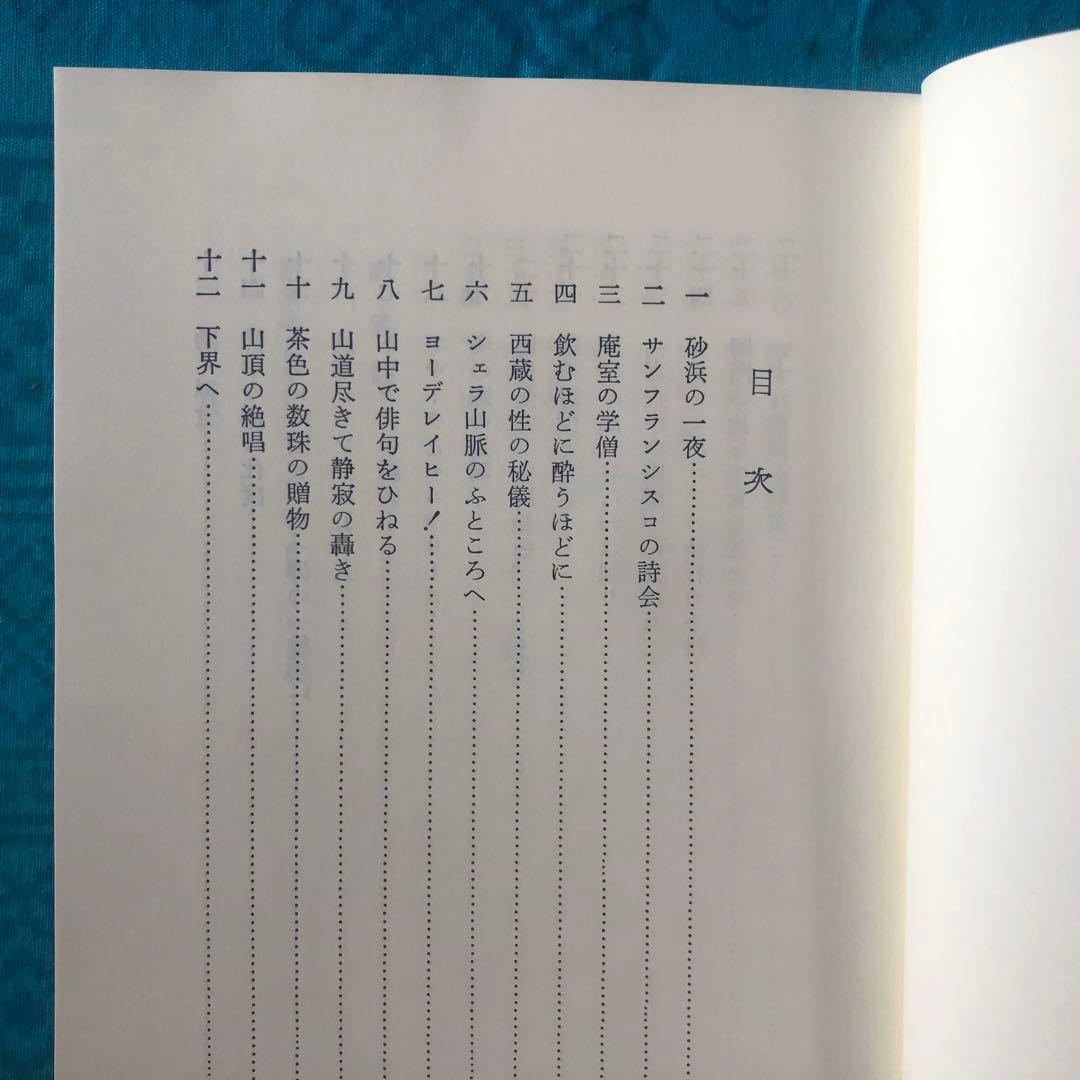 目次
一 砂浜の一夜
二 サンフランシスコの詩会
三 庵室の学僧
四 飲むほどに酔うほどに
五 西蔵の性の秘儀
六 シェラ山脈のふところへ
七 ヨーデレイヒー!
八 山中で俳句をひねる
九 山道尽きて静寂の轟き
十 茶色の数珠の贈物
十一 山頂の絶唱
十二 下界へ